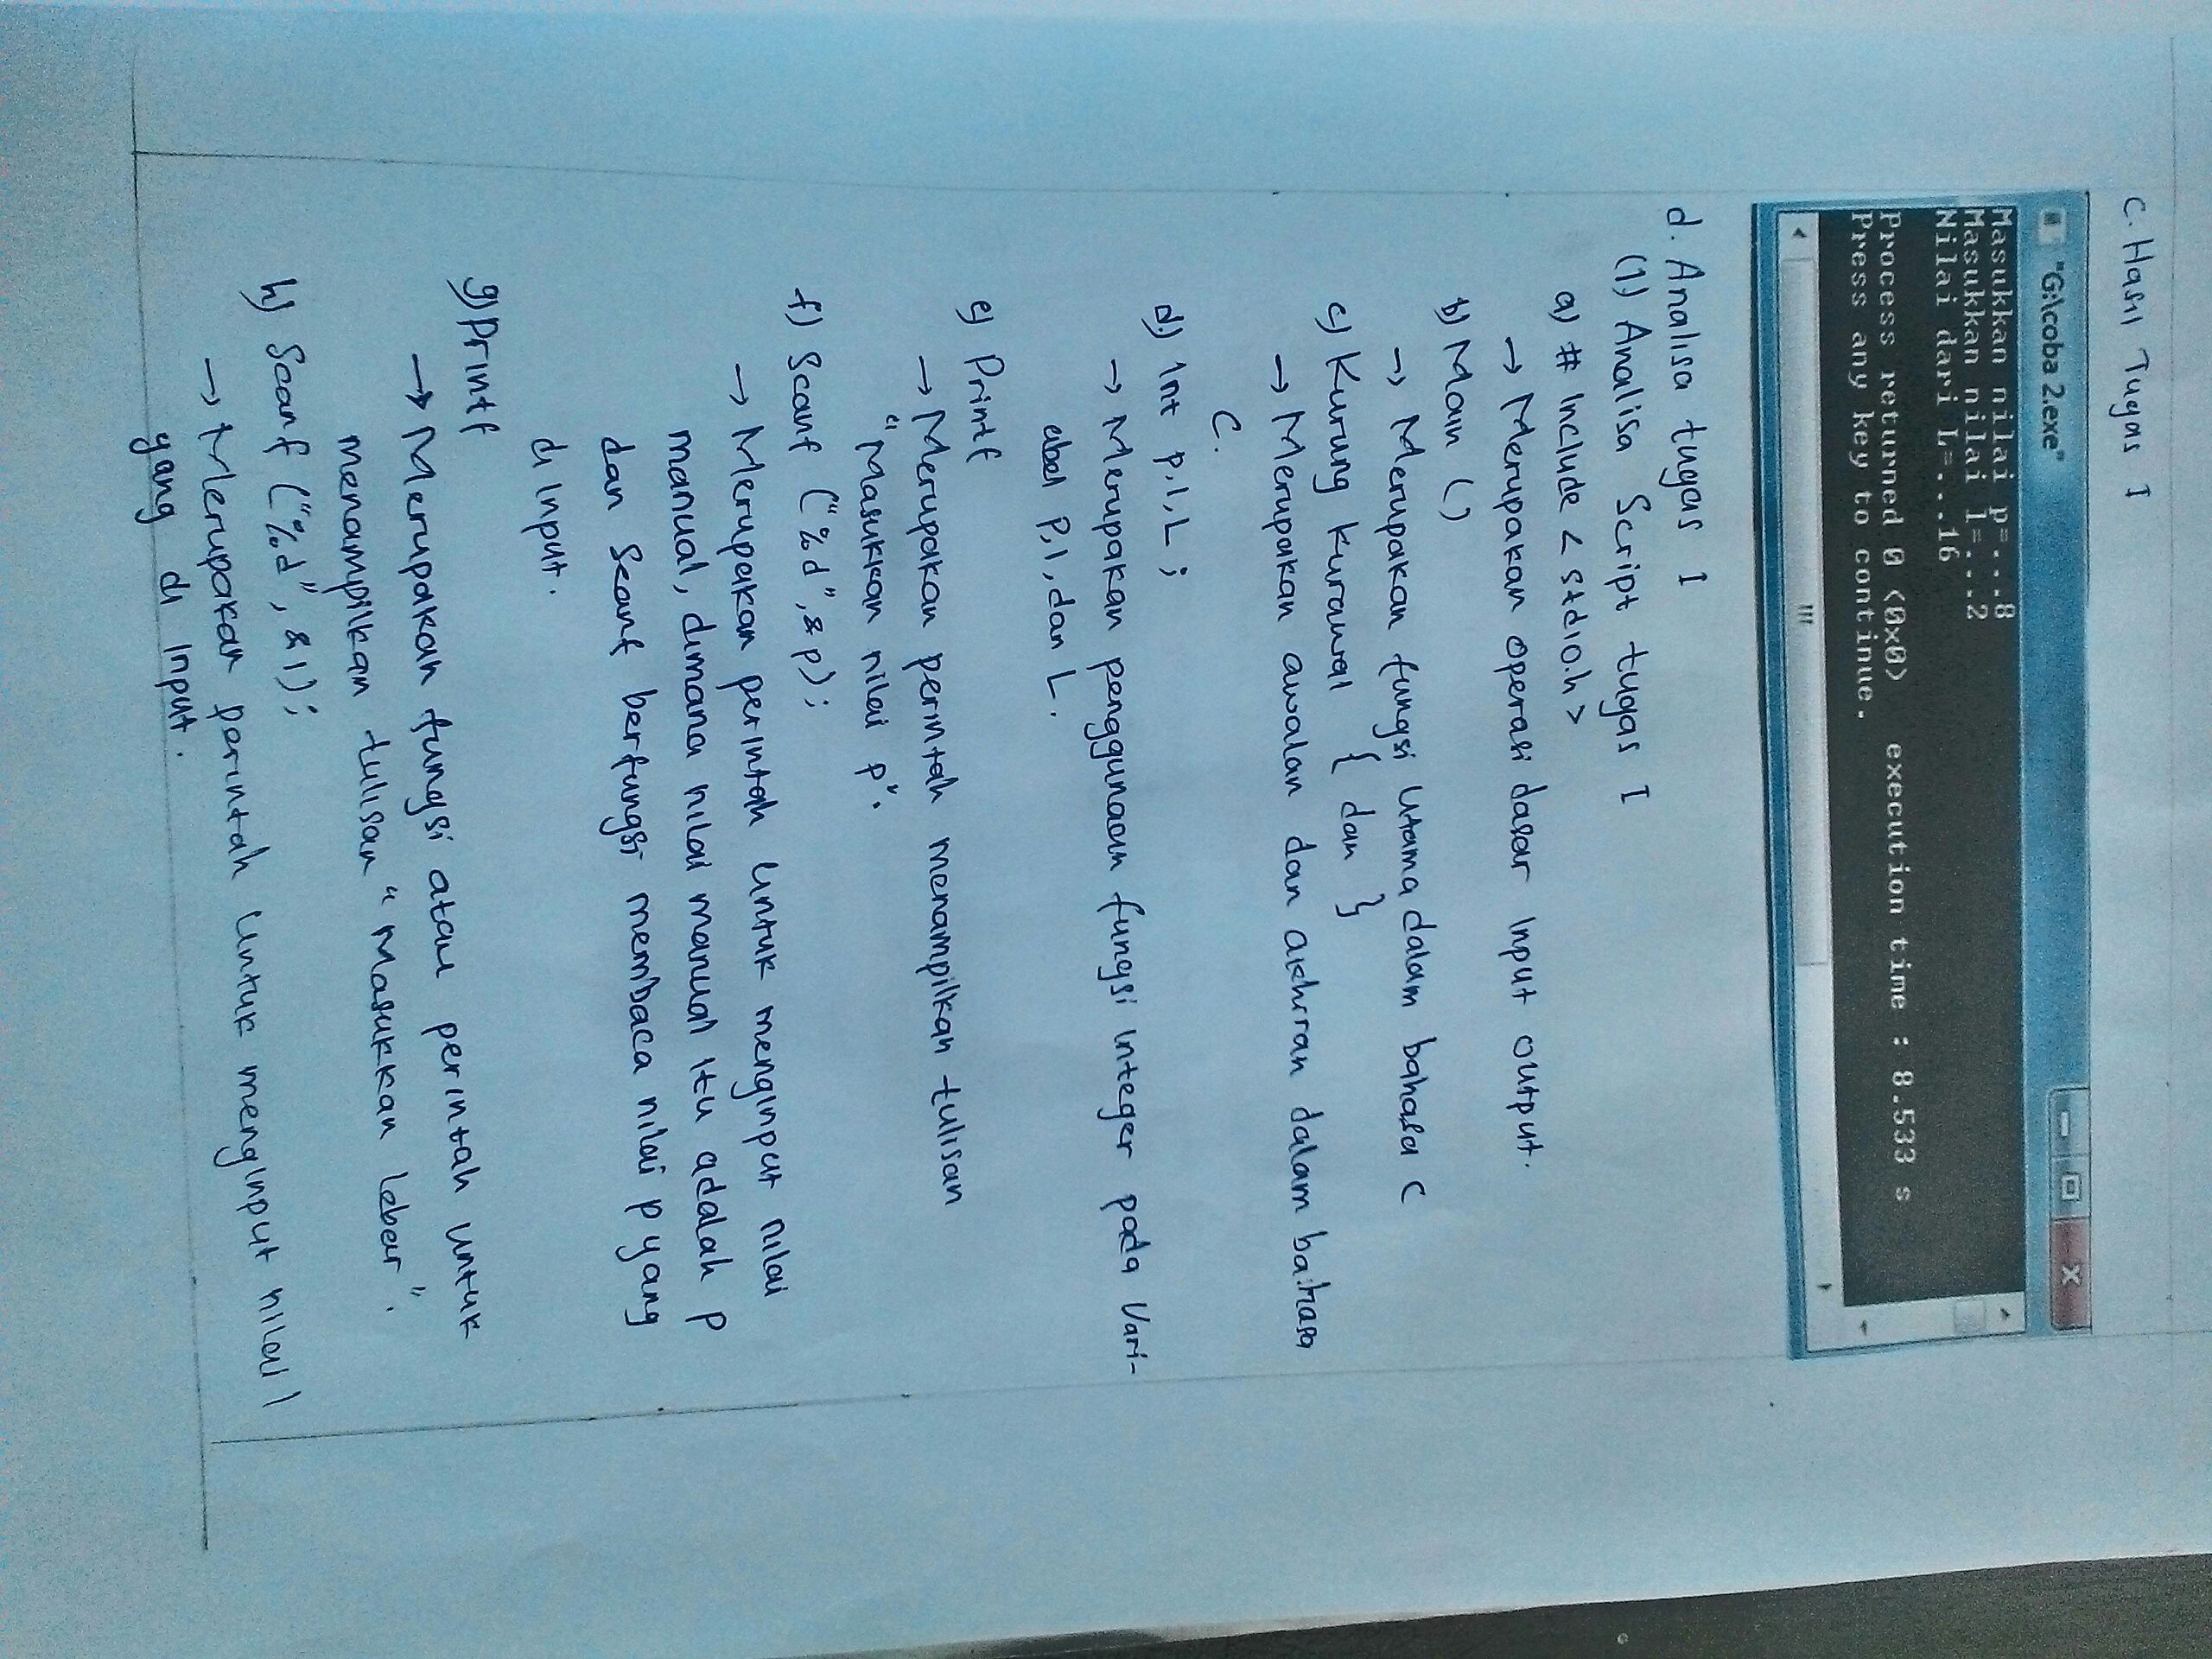 C. Hasil Tugas I
"G:\coba 2.exe"
Masukkan nilai p=...8
Masukkan nilai l=...2
Nilai dari L=...16
Process returned 0 (0x0) execution time : 8.533 s
Press any key to continue.
d. Analisa tugas I
(1) Analisa Script tugas I
a) # Include < stdio.h >
→ Merupakan operasi dasar Input output.
b) Main ()
→ Merupakan fungsi utama dalam bahasa C
c) Kurung kurawal { dan }
→ Merupakan awalan dan akhiran dalam bahasa
C.
d) Int p,l,L ;
→ Merupakan penggunaan fungsi integer pada Vari-
abel p,l,dan L.
e) Printf
→ Merupakan perintah menampilkan tulisan
"Masukkan nilai p".
f) Scanf ("%d",&p);
→ Merupakan perintah untuk menginput nilai
manual, dimana nilai manual itu adalah p
dan Scanf berfungsi membaca nilai p yang
di Input.
g) Printf
→ Merupakan fungsi atau perintah untuk
menampilkan tulisan "Masukkan lebar".
h) Scanf ("%d",&l);
→ Merupakan perintah untuk menginput nilai l
yang di Input.